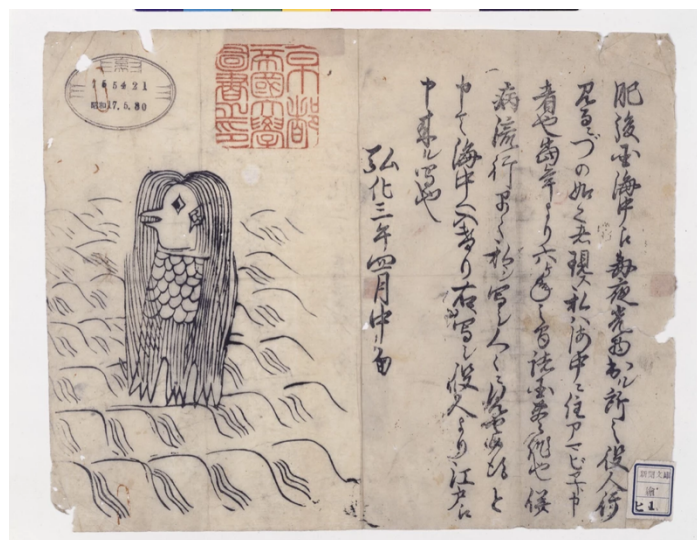 肥後国海中江毎夜光物出ル所之役人行
見るニづの如之者現ス私ハ海中ニ住アマビヱト申
者也当年より六ヶ年之間諸国豊作也併
病流行早々私ヲ写シ人々ニ見セ候得と
申て海中へ入けり右写シ役人より江戸江
申来ル写也
弘化三年四月中旬
京都
帝國大學
圖書之印
昭和17.5.30
新聞文庫
繪
ヒ 1